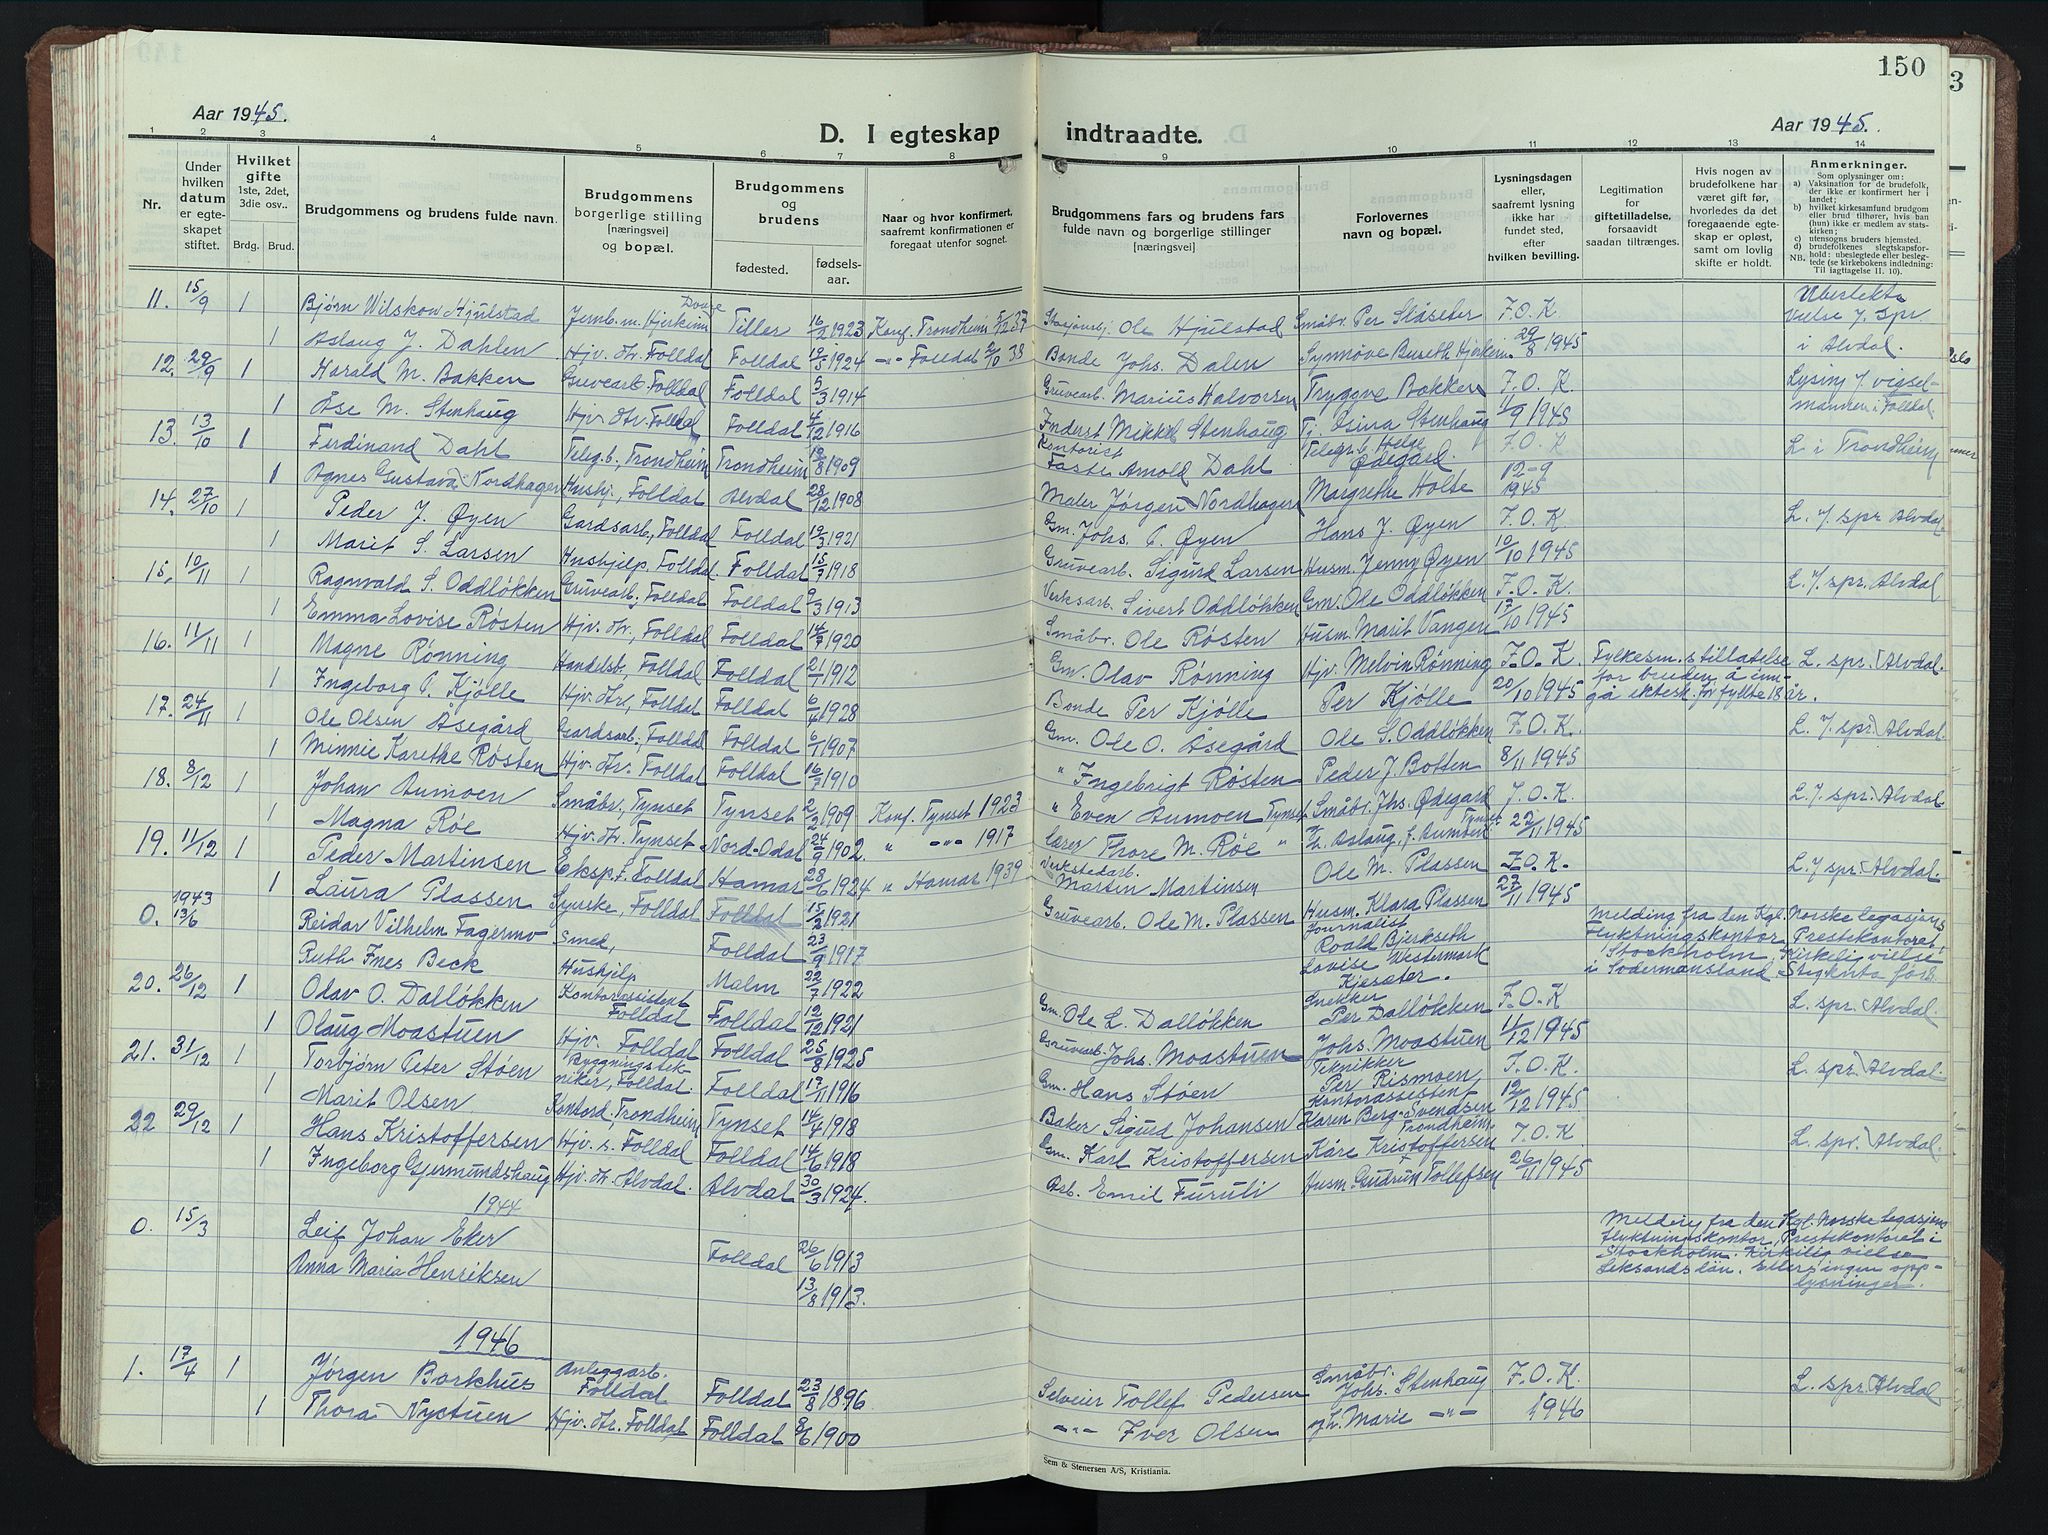 150
Aar 1945.
D. I egteskap indtraadte.
Aar 1945.
1 2 3 4 5 6 7 8 9 10 11 12 13 14
Nr.
Under hvilken datum er egteskapet stiftet.
Hvilket gifte 1ste, 2det, 3die osv..
Brdg. Brud.
Brudgommens og brudens fulde navn.
Brudgommens borgerlige stilling [næringsvei] og bopæl.
Brudgommens og brudens
fødested.
fødselsaar.
Naar og hvor konfirmert, saafremt konfirmationen er foregaat utenfor sognet.
Brudgommens fars og brudens fars fulde navn og borgerlige stillinger [næringsvei]
Forlovernes navn og bopæl.
Lysningsdagen eller, saafremt lysning ikke har fundet sted, efter hvilken bevilling.
Legitimation for giftetilladelse, forsaavidt saadan tiltrænges.
Hvis nogen av brudefolkene har været gift før, hvorledes da det foregaaende egteskap er opløst, samt om lovlig skifte er holdt.
Anmerkninger.
Som oplysninger om:
a) Vaksination for de brudefolk, der ikke er konfirmert her i landet;
b) hvilket kirkesamfund brudgom eller brud tilhører, hvis han (hun) ikke er medlem av statskirken;
c) utensogns bruders hjemsted.
d) brudefolkenes slegtskapsforhold: ubeslegtede eller beslegtede (se kirkebokens indledning:
NB. Til iagttagelse II. 10).
11. 15/9 1 Bjørn Wilskow Hjulstad Jernb.m. Hjerkinn Dovre Tiller 16/2 1923 Konf. Trondheim 5/12 37 Stasjonsb. Ole Hjulstad Småbr. Per Slåseter F.O.K. Ubertekta vielse f. spr. i Alvdal.
1 Aslaug J. Dahlen Hjv. dtr. Folldal Folldal 19/3 1924 -"- Folldal 2/10 38 Bonde Johs. Dalen Synnøve Buseth Hjerkinn 29/8 1945
12. 29/9 1 Harald M. Bakken Gruvearb. Folldal Folldal 5/3 1914 Gruvearb. Marius Halvorsen Tryggve Bakken F.O.K. Lysing f. vigselmannen i Folldal.
1 Åse M. Stenhaug Hjv. dtr. Folldal Folldal 4/12 1916 Inderst Mikkel Stenhaug Tj. Osina Stenhaug 11/9 1945
13. 13/10 1 Ferdinand Dahl Telegb., Trondheim Trondheim 19/8 1909 Kontorist Arnold Dahl Telegr.b. Helge Ødegård F.O.K L i Trondheim
1 Agnes Gustava Nordhagen Hushj., Folldal Alvdal 28/12 1908 Maler Jørgen Nordhagen Margrethe Holte 12-9 1945
14. 27/10 1 Peder J. Øyen Gardsarb., Folldal Folldal 19/3 1921 Gm. Johs. P. Øyen Hans J. Øyen F.O.K. L. f. spr Alvdal
1 Marit S. Larsen Hushjelp, Folldal. Folldal 15/7 1918 Gruvearb. Sigurd Larsen Husm. Jenny Øyen 10/10 1945
15. 10/11 1 Ragnvald S. Oddløkken Gruvearb., Folldal Folldal 9/3 1913 Verksarb. Sivert Oddløkken Gm. Ole Oddløkken F.O.K. L. f. spr. Alvdal
1 Emma Lovise Røsten Hjv. dtr., Folldal Folldal 14/7 1920 Småbr. Ole Røsten Husm. Marit Vangen 17/10 1945
16. 11/11 1 Magne Rønning Handelsb., Folldal Folldal 21/1 1912 Gm. Olav Rønning Hjv. Melvin Rønning F.O.K. Fylkesm.s tillatelse for bruden å inngå ektesk. før fylte 18 år. L. spr. Alvdal.
1 Ingeborg P. Kjølle Hjv. dtr., Folldal Folldal 6/4 1928 Bonde Per Kjølle Per Kjølle 20/10 1945
17. 24/11 1 Ole Olsen Åsegård Gardsarb., Folldal Folldal 6/1 1907 Gm. Ole O. Åsegård Ole S. Oddløkken F.O.K. L. f. spr. Alvdal.
1 Minnie Karethe Røsten Hjv. dtr. Folldal Folldal 16/7 1910 " Ingebrigt Røsten Peder J. Botten 8/11 1945
18. 8/12 1 Johan Aumoen Småbr., Tynset Tynset 2/2 1909 Konf. Tynset 1923 " Even Aumoen Tynset Småbr. Jhs. Ødegård Tynset F.O.K. L. f. spr. Alvdal
1 Magna Røe Hjv. dtr. Tynset Nord-Odal 24/9 1902. " -"- 1917 Lærer Thore M. Røe " Aslaug Aumoen 22/11 1945
19. 11/12 1 Peder Martinsen Eksp. f. Folldal Hamar 28/6 1924 " Hamar 1939 Verkstedarb. Martin Martinsen Ole M. Plassen F.O.K. L. f. spr. Alvdal.
1 Laura Plassen Syerske, Folldal Folldal 15/2 1921 Gruvearb. Ole M. Plassen Husm. Klara Plassen 22/11 1945
0. 1943 13/6 Reidar Vilhelm Fagermo Smed, Folldal 23/9 1917 Journalist Roald Bjerkseth Melding fra den Kgl. Norske legasjons Flyktningskontor, Prestekontoret, Stockholm. Kirkelig vielse i Södermansland
Ruth Ines Beck Hushjelp Malm 22/7 1922 Lovise Westermark Kjesäter.
20. 26/12 1 Odav O. Dalløkken Kontorassistent Folldal Folldal 12/12 1921 Gm. Ole L. Dalløkken Snekker Per Dalløkken F.O.K L. spr. Alvdal.
1 Olaug Moastuen Hjv. Folldal Folldal 25/8 1925 Gruvearb. Johs. Moastuen Johs. Moastuen 11/12 1945
21. 31/12 1 Torbjørn Peter Støen Byggningstekniker, Folldal. Folldal 17/11 1916 Gm. Hans Støen Teknikker Per Rismoen F.O.K. L. spr. Alvdal.
1 Marit Olsen Kontord. Trondheim Tynset 14/4 1918 Baker Sigurd Johansen Kontorassistent Karen Berg-Svendsen Trondheim 12/12 1945
22 29/12 1 Hans Kristoffersen Hjv. s. Folldal Folldal 14/6 1918 Gm. Karl Kristoffersen Kåre Kristoffersen F.O.K L. spr. Alvdal.
1 Ingeborg Gjermundshaug Hjv. dt. Alvdal. Alvdal 30/3 1924. Arb. Emil Furuli Husm. Gudrun Tollefsen 26/11 1945
1944
0. 15/3 Leif Johan Eker Folldal 26/6 1913 Melding fra den Kgl. Norske legasjons flyktningskontor, Prestekontoret i Stockholm. Kirkelig vielse Leksands län. Ellers ingen opplysninger.
Anna Maria Henriksen 13/8 1913.
1946
1. 17/4 1 Jørgen Borkhus Anleggarb. Folldal Folldal 23/8 1896 Selveier Tollef Pedersen Småbr. Johs. Stenhaug F.O.K. L. spr. Alvdal
1 Thora Nystuen Hjv. dtr. Folldal Folldal 8/6 1900 -"- Iver Olsen og h. Marie -"- 1946
Sem & Stenersen A/S, Kristiania.